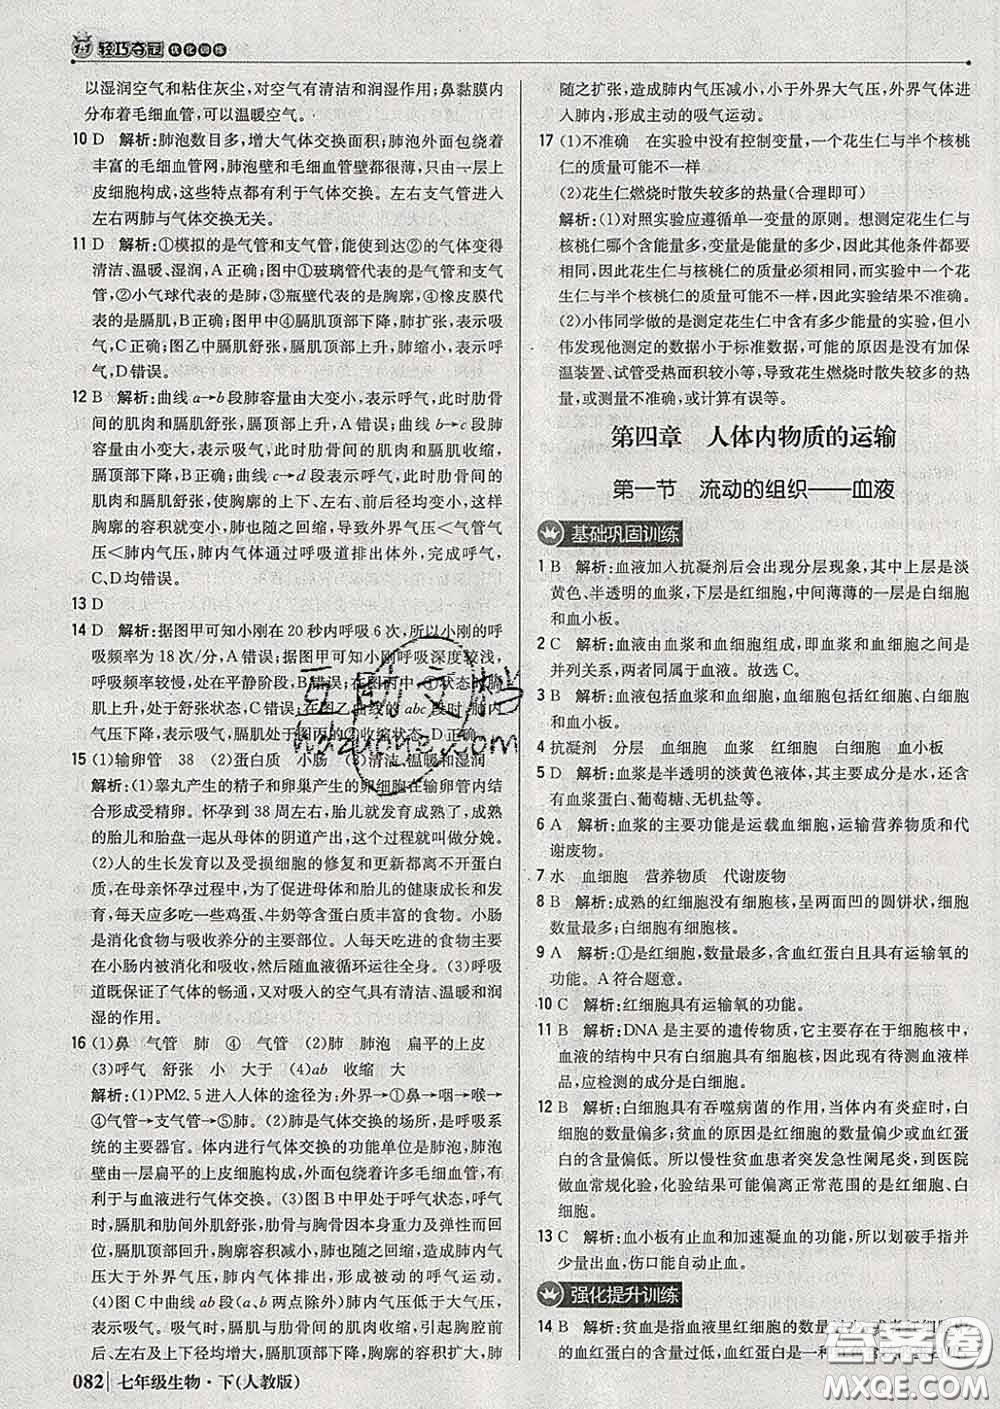 1+1 轻巧夺冠 优化训练
以湿润空气和粘住灰尘,对空气有清洁和润湿作用;鼻黏膜内
分布着毛细血管,可以温暖空气。
10 D 解析:肺泡数目多,增大气体交换面积;肺泡外面包绕着
丰富的毛细血管网,肺泡壁和毛细血管壁都很薄,只由一层上
皮细胞构成,这些特点都有利于气体交换。左右支气管进入
左右两肺与气体交换无关。
11 D 解析:①模拟的是气管和支气管,能使到达②的气体变得
清洁、温暖、湿润,A正确;图中①玻璃管代表的是气管和支气
管,②小气球代表的是肺,③瓶壁代表的是胸廓,④橡皮膜代
表的是膈肌,B正确;图甲中④膈肌顶部下降,肺扩张,表示吸
气,C正确;图乙中膈肌舒张,膈肌顶部上升,肺缩小,表示呼
气,D错误。
12 B 解析:曲线a→b段肺容量由大变小,表示呼气,此时肋骨
间的肌肉和膈肌舒张,膈顶部上升,A错误;曲线b→c段肺
容量由小变大,表示吸气,此时肋骨间的肌肉和膈肌收缩,
膈顶部下降,B正确;曲线c→d段表示呼气,此时肋骨间的
肌肉和膈肌舒张,使胸廓的上下、左右、前后径均变小,
胸廓的容积就变小,肺也随之回缩,导致外界气压<气管气
压<肺内气压,肺内气体通过呼吸道排出体外,完成呼气,
C、D均错误。
13 D
14 D 解析:据图甲可知小刚在20秒内呼吸6次,所以小刚的呼
吸频率为18次/分,A错误;据图甲可知小刚呼吸深度较浅,
呼吸频率较慢,处于平静阶段,B错误;图丙中,①状态时膈
肌上升,处于舒张状态,C错误;在图乙曲线的abc段时,肺内
气压下降,表示吸气,膈肌处于图丙的②收缩状态,D正确。
15 (1)输卵管 38 (2)蛋白质 小肠 (3)清洁、温暖和湿润
解析:(1)睾丸产生的精子和卵巢产生的卵细胞在输卵管内结
合形成受精卵。怀孕到38周左右,胎儿就发育成熟了,成熟
的胎儿和胎盘一起从母体的阴道产出,这个过程就叫做分娩。
(2)人的生长发育以及受损细胞的修复和更新都离不开蛋白
质,母亲怀孕过程中,为了促进母体和胎儿的健康成长和发
育,要多吃一些鸡蛋、牛奶等含蛋白质丰富的食物。小肠
是消化食物与吸收养分的主要部位。人每天吃进的食物主要
在小肠内被消化和吸收,然后随血液循环运往全身。(3)呼吸
道既保证了气体的畅通,又对吸入的空气具有清洁、温暖和润
湿的作用。
16 (1)鼻 气管 肺 ④ 气管 (2)肺 肺泡 扁平的上皮
(3)呼气 舒张 小 大于 (4)ab 收缩 大
解析:(1)PM2.5进入人体的途径为:外界→①鼻→咽→喉→
④气管→支气管→⑤肺。(2)肺是气体交换的场所,是呼吸系
统的主要器官。体内进行气体交换的功能单位是肺泡,肺泡
壁由一层扁平的上皮细胞构成,外面缠绕着许多毛细血管,有
利于与血液进行气体交换。(3)图B中甲处于呼气状态,呼气
时,膈肌和肋间外肌舒张,肋骨与胸骨因本身重力及弹性而回
位,膈肌顶部回升,胸廓容积缩小,肺也随之回缩,造成肺内气
压大于外界气压,肺内气体排出,形成被动的呼气运动。
(4)图C中曲线ab段(a、b两点除外)肺内气压低于外界气
压,表示吸气。吸气时,膈肌与肋间外肌收缩,引起胸腔前后、
左右及上下径均增大,膈肌顶部下降,胸廓的容积扩大,肺
随之扩张,造成肺内气压减小,小于外界大气压,外界气体进
入肺内,形成主动的吸气运动。
17 (1)不准确 在实验中没有控制变量,一个花生仁与半个核桃
仁的质量可能不一样
(2)花生仁燃烧时散失较多的热量(合理即可)
解析:(1)对照实验应遵循单一变量的原则。想测定花生仁与
核桃仁哪个含能量多,变量是能量的多少,因此其他条件都要
相同,因此花生仁与核桃仁的质量必须一样,而一个花生仁与
半个核桃仁的质量可能不一样,因此实验结果不准确。
(2)小伟同学做的是测定花生仁中含有多少能量的实验,但小
伟发现他测定的数据小于标准数据,可能的原因是没有加保
温装置、试管受热面积较小等,导致花生燃烧时散失较多的热
量,或测量不准确,或计算有误等。
第四章 人体内物质的运输
第一节 流动的组织——血液
基础巩固训练
1 B 解析:血液加入抗凝剂后会出现分层现象,其中上层是淡
黄色、半透明的血浆,下层是红细胞,中间薄薄的一层是白细胞
和血小板。
2 C 解析:血液由血浆和血细胞组成,即血浆与血细胞之间是
并列关系,两者同属于血液。故选C。
3 B 解析:血液包括血浆和血细胞,血细胞包括红细胞、白细胞
和血小板。
4 抗凝剂 分层 血细胞 血浆 红细胞 白细胞 血小板
5 D 解析:血浆是半透明的淡黄色液体,主要成分是水,还有
血浆蛋白、葡萄糖、无机盐等。
6 A 解析:血浆的主要功能是运载血细胞,运输营养物质和代
谢废物。
7 水 血细胞 营养物质 代谢废物
8 B 解析:成熟的红细胞没有细胞核,呈两面凹的圆饼状,细胞
数量最多;白细胞有细胞核。
9 A 解析:①是红细胞,数量最多,含血红蛋白且具有运输氧的
功能。A符合题意。
10 C 解析:红细胞具有运输氧的功能。
11 B 解析:DNA是主要的遗传物质,它主要存在于细胞核中,
血液的结构中只有白细胞具有细胞核,因此现有待测血液样
品,应检测的成分是白细胞。
12 B 解析:白细胞具有吞噬病菌的作用,当体内有炎症时,白
细胞的数量偏多;贫血的原因是红细胞的数量偏少或血红蛋
白的含量偏低。所以慢性贫血患者突发急性阑尾炎,到医院
做血常规化验,化验结果可能偏离正常范围的是红细胞、血红
蛋白、白细胞。
13 C 解析:血小板有止血和加速凝血的功能,所以划破手指并
少量出血,伤口能自动止血。
强化提升训练
14 B 解析:贫血是指血液里红细胞的数量
的血红蛋白的含量过低,血红蛋白是一种
082 七年级生物·下(人教版)
互助文档
hdzuoye.com
答案圈
MXQE.COM